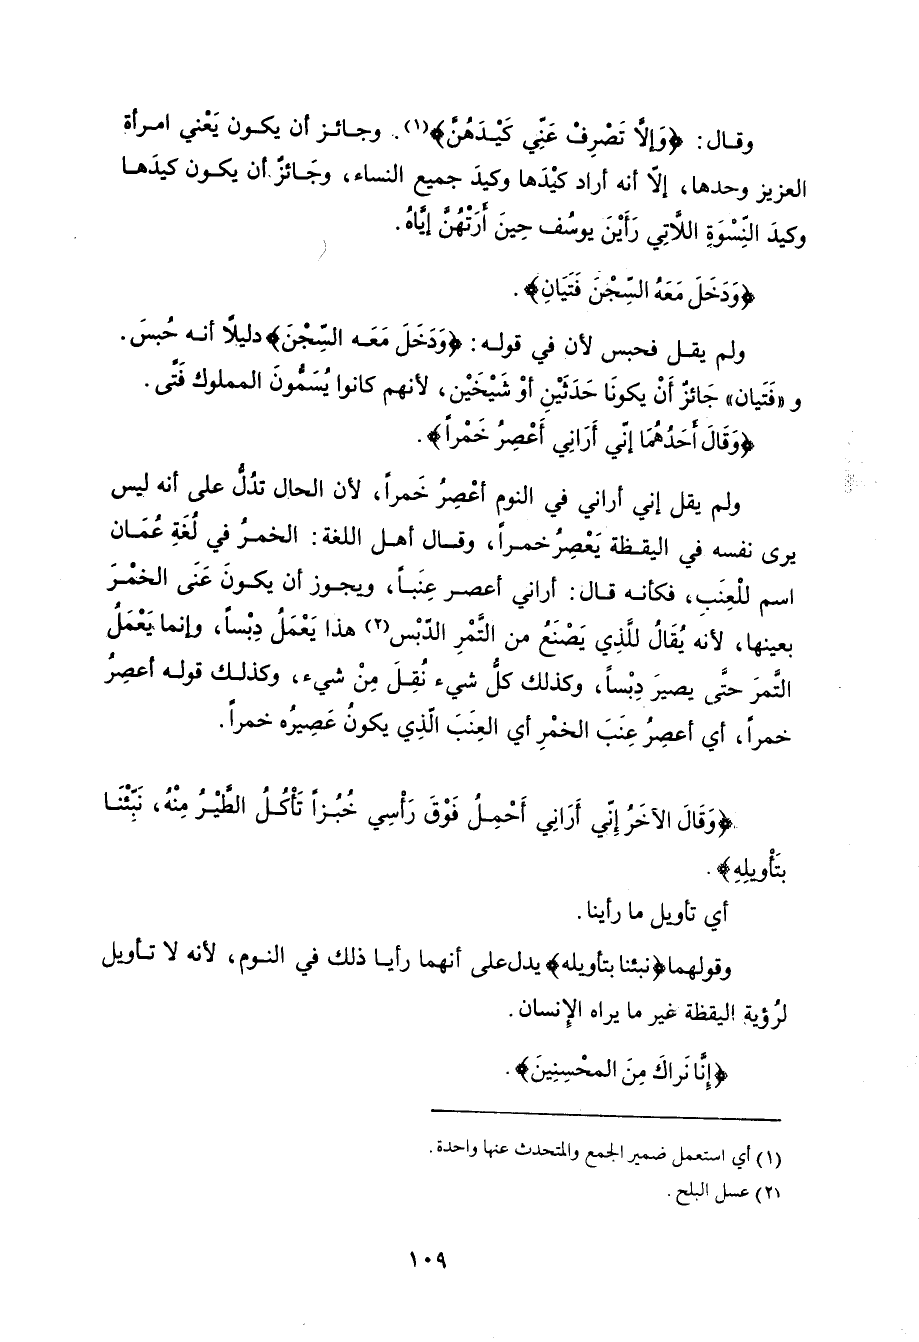 وقال: ﴿وَإِلَّا تَصْرِفْ عَنِّي كَيْدَهُنَّ﴾(١). وجائز أن يكون يَعْني امرأة
العزيز وحدها، إلّا أنه أراد كَيْدَها وكيدَ جميع النساء، وجَائزٌ أن يكون كيدَها
وكيدَ النِّسْوَةِ اللَّاتي رَأَيْنَ يوسُف حِينَ أَرَتْهُنَّ إيَّاهُ.
﴿وَدَخَلَ مَعَهُ السِّجْنَ فَتَيَانِ﴾.
ولم يقل فحبس لأن في قوله: ﴿وَدَخَلَ مَعَه السِّجْنَ﴾ دليلًا أنه حُبسَ.
و «فَتَيان» جَائزٌ أَنْ يكونَا حَدَثَيْنِ أوْ شَيْخَيْن، لأنهم كانوا يُسَمُّونَ المملوك فَتًى.
﴿وَقَالَ أَحَدُهُمَا إِنِّي أَرَانِي أَعْصِرُ خَمْراً﴾.
ولم يقل إني أراني في النوم أعْصِرُ خَمراً، لأن الحال تدُلُّ على أنه ليس
يرى نفسه في اليقظة يَعْصِرُ خمراً، وقال أهل اللغة: الخمرُ في لُغَةِ عُمَان
اسم للْعِنَبِ، فكأنه قال: أراني أعصر عِنَباً، ويجوز أن يكونَ عَنَى الخمْرَ
بعينها، لأنه يُقَالُ للَّذِي يَصْنَعُ من التَّمْرِ الدّبْس(٢) هذا يَعْمَلُ دِبْساً، وإنما يَعْمَلُ
التَّمرَ حتَّى يصيرَ دِبْساً، وكذلك كلُّ شيء نُقِلَ مِنْ شيء، وكذلك قوله أعصِرُ
خمراً، أي أعصِرُ عِنَبَ الخمْرِ أي العِنَبَ الّذِي يكونُ عَصِيرُه خمراً.
﴿وَقَالَ الآخَرُ إِنِّي أَرَانِي أَحْمِلُ فَوْقَ رَأْسِي خُبْزاً تَأْكُلُ الطَّيْرُ مِنْهُ، نَبِّئْنَا
بِتَأْوِيلِهِ﴾.
أي تأويل ما رأينا.
وقولهما ﴿نبئنا بتأويله﴾ يدل على أنهما رأيا ذلك في النوم، لأنه لا تأويل
لرُؤية اليقظة غير ما يراه الإنسان.
﴿إِنَّا نَراكَ مِنَ المحْسِنِينَ﴾.
(١) أي استعمل ضمير الجمع والمتحدث عنها واحدة.
(٢) عسل البلح.
١٠٩